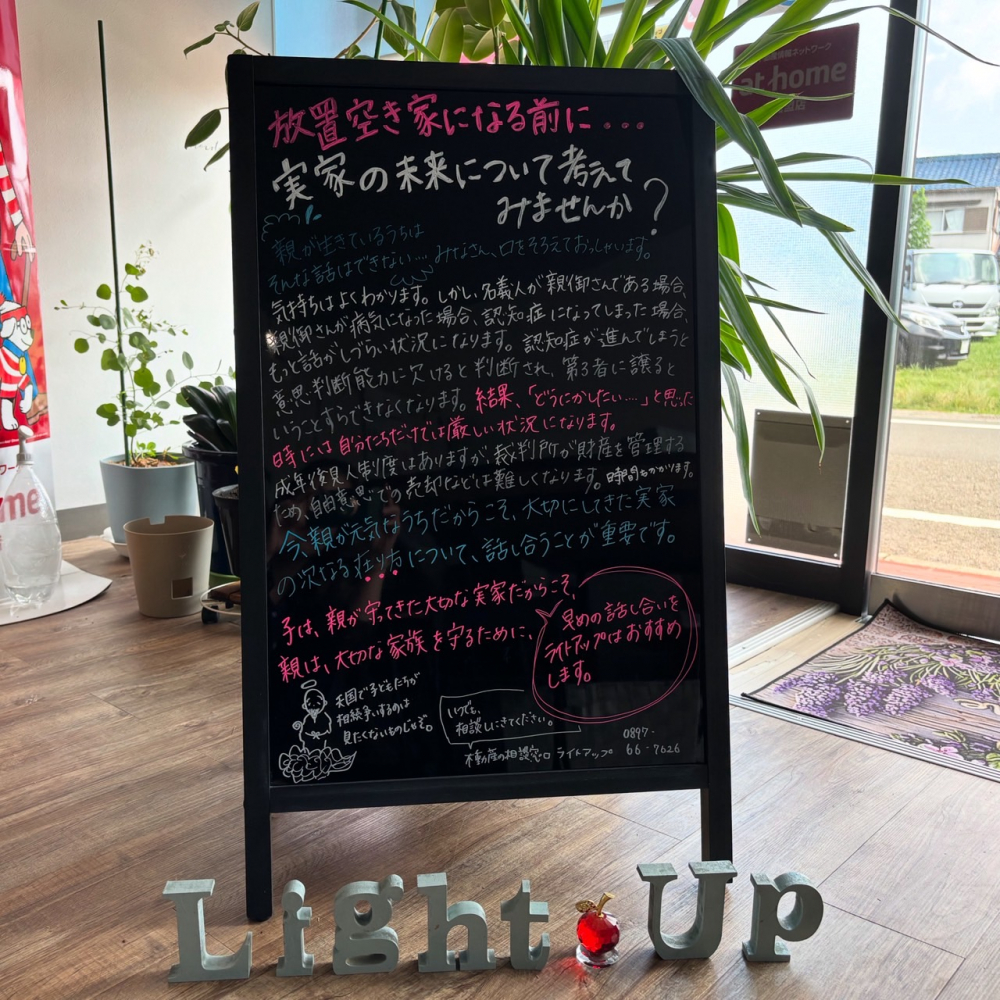 放置空き家になる前に...
実家の未来について考えて
みませんか?
親が生きているうちは
そんな話はできない.... みなさん、口をそろえておっしゃいます。
気持ちはよくわかります。しかし、名義人が親御さんである場合、
親御さんが病気になった場合、認知症になってしまった場合、
もっと話がしづらい状況になります。認知症が進んでしまうと
意思判断能力に欠けると判断され、第3者に譲ると
いうことすらできなくなります。結果、「どうにかしたい....」と思った
時には自分たちだけでは厳しい状況になります。
成年後見人制度はありますが、裁判所が財産を管理する
ため、自由意思での売却などは難しくなります。時間もかかります。
今、親が元気なうちだからこそ、大切にしてきた実家
の次なる在り方について、話し合うことが重要です。
子は、親が守ってきた大切な実家だからこそ、
親は、大切な家族を守るために、
早めの話し合いを
ライトアップはおすすめ
します。
天国で子どもたちが
相続争いするのは
見たくないものじゃぞ。
いつでも、
相談しにきてください。
不動産の相談窓口 ライトアップ
0897-
66-7626
Light Up
ネットワーク
at home
店
me